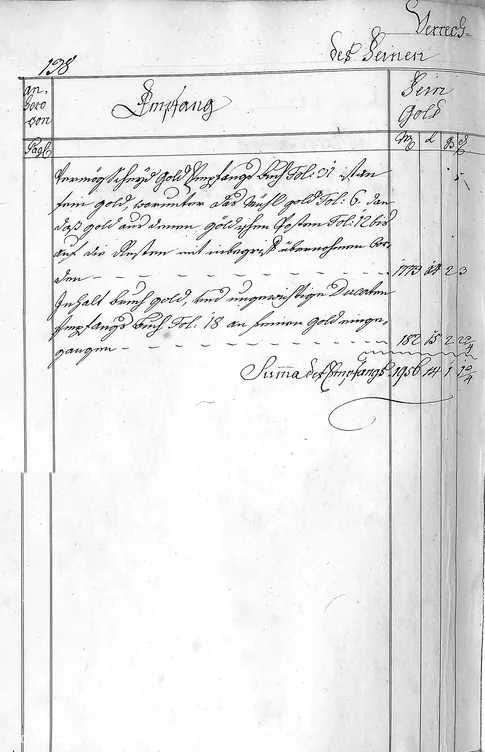 Verrech-
des Feinen
138
an.
Empfang
Fein
Gold
Vermög Scheyd Gold Empfangs Buch Fol: 31 ist an
fein gold, worunter das Mühl gold Fol: 6. dan
das gold aus denen göldischen Posten Fol: 12 bis
auf die Resten mit inbegrif übernohmen wor-
den 1773 14 2 3
Inhalt bruch gold, und ungewichtige Ducaten
Empfangs Buch Fol. 18 an feinen gold einge-
gangen 182 15 2
Summa des Empfangs 1956 14 1